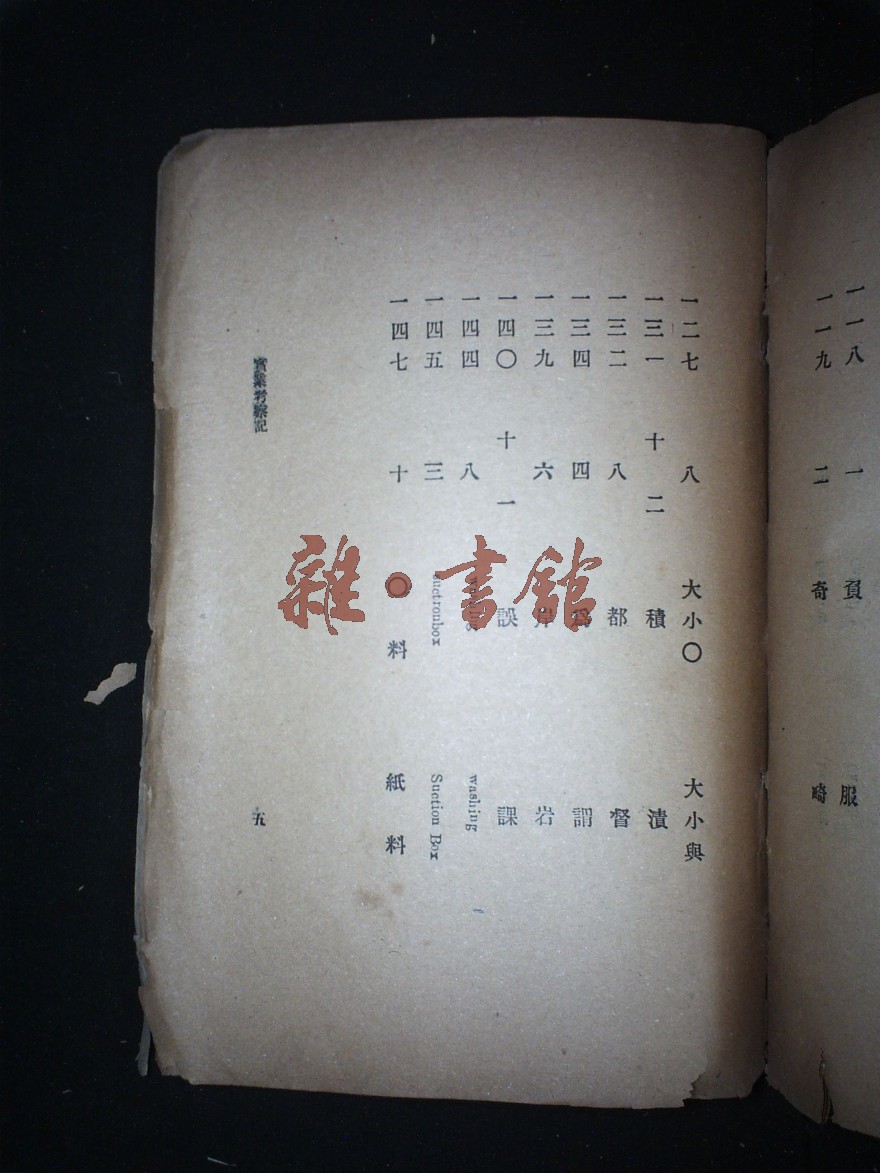 一一八　一　負　服
一一九　二　奇　畸
一二七　八　大小〇　大小與
一三一　十二　積　漬
一三二　八　都　督
一三四　四　爲　謂
一三九　六　岸　岩
一四〇　十一　誤　課
一四四　八　washing
一四五　三　suctroubox　Suction Box
一四七　十　料　紙料
實業考察記
五
雜・書館